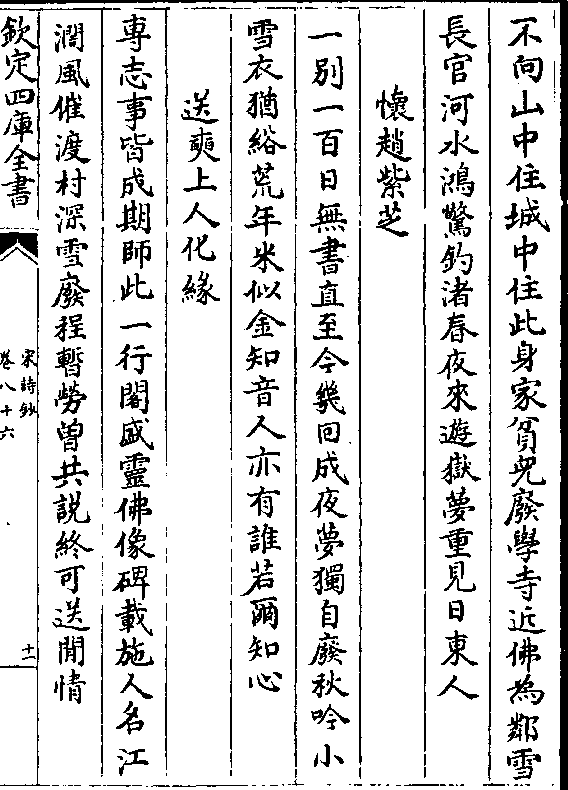 不向山中住城中住此身家貧兒廢學寺近佛為鄰雪
長官河水鴻驚釣渚春夜來遊嶽夢重見日東人
懷趙紫芝
一别一百日無書直至今幾回成夜夢獨自廢秋吟小
雪衣猶綌荒年米似金知音人亦有誰若爾知心
送奭上人化緣
専志事皆成期師此一行閣盛靈佛像碑載施人名江
濶風催渡村深雪廢程暫勞曽共說終可送閒情
欽定四庫全書
宋詩鈔
卷八十六
十一